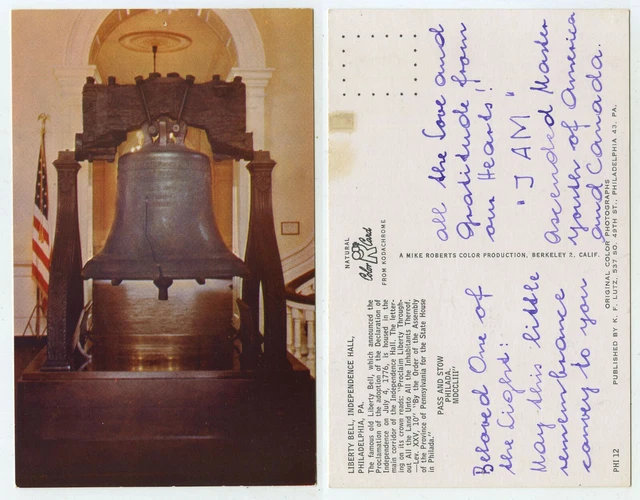 LIBERTY BELL, INDEPENDENCE HALL,
PHILADELPHIA, PA.
The famous old Liberty Bell, which announced the
Proclamation of the adoption of the Declaration of
Independence on July 4, 1776, is housed in the
main corridor of the Independence Hall. The letter-
ing on its crown reads: "Proclaim Liberty Through-
out All the Land Unto All the Inhabitants Thereof.
—Lev. XXV, 10" "By the Order of the Assembly
of the Province of Pennsylvania for the State House
in Philada."
PASS AND STOW
PHILADA.
MDCCLIII"
NATURAL
Color Card
FROM KODACHROME
A MIKE ROBERTS COLOR PRODUCTION, BERKELEY 2, CALIF.
Beloved One of
the Light:
May this little
remembrance
convey to you
all the Love and
Gratitude from
our Hearts!
"I AM"
Ascended Master
Youths of America
and Canada.
ORIGINAL COLOR PHOTOGRAPHS
PUBLISHED BY K. F. LUTZ, 537 SO. 49TH ST., PHILADELPHIA 43, PA.
PHI 12